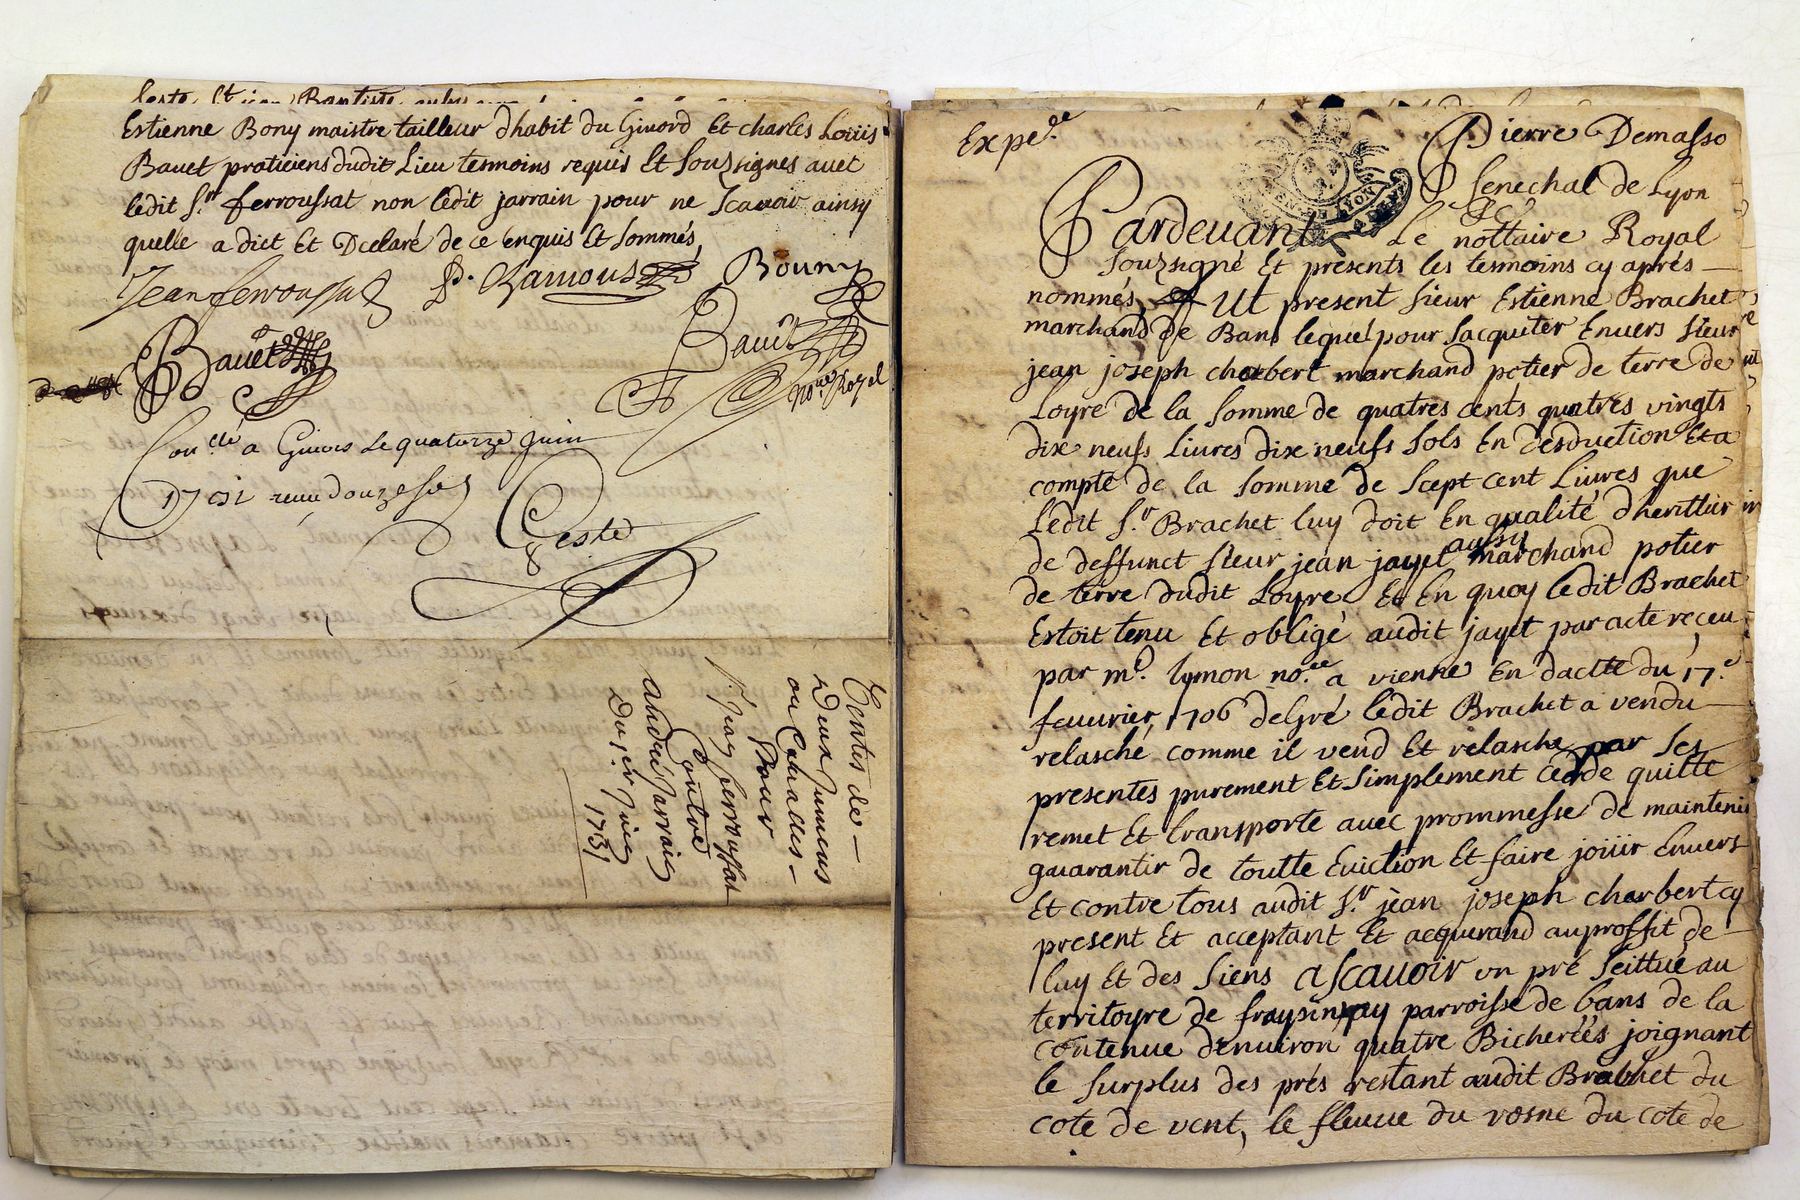 Estienne Bony maistre tailleur dhabit du Givord Et charles Loüis
Bauet praticiens dudit Lieu tesmoins requis Et Souzsignes auet
ledit S.r ferroussat non ledit jarrain pour ne Scauoir ainsy
quelle a dict Et Declaré de ce enquis Et Sommés
Jean ferroussat P. Chamous Bouny
Bauet Bauet
no.re Royal
Con.llé a Givors Le quatorze Juin
1731 receu douze sols
Geste
Ventes de
Deux Jumens
ou Cavalles
Pour
S. Jean ferroussat
Contre
André Jarrain
Du 1.er Juin
1731
Expe.de
Pierre Demasso
Senechal de Lyon
&c
Pardeuant Le nottaire Royal
Souzsigné Et presents les tesmoins cy aprés
nommés, fut present sieur Estienne Brachet
marchand de Bans lequel pour Sacquiter Enuers Sieur
jean joseph charbert marchand potier de terre de
Loyre de la Somme de quatres cents quatres vingts
dix neufs Liures dix neufs Sols En desduction Et a
compte de la Somme de Scept cent Liures que
Ledit S.r Brachet luy doit En qualité dherittier
de deffunct Sieur jean jayet aussy marchand potier
de terre dudit Loyre Et En quoy ledit Brachet
Estoit tenu Et obligé audit jayet par acte receu
par m.e lymon no.re a vienne En dacte du 17.e
feuurier 1706 de Gré ledit Brachet a vendu
relasché comme il vend Et relasche par ses
presentes purement Et Simplement cedde quitte
remet Et transporte auec prommesse de maintenir
guarantir de toutte Euiction Et faire joüir Enuers
Et contre tous audit S.r jean joseph charbert cy
present Et acceptant Et acquerand auproffit de
luy Et des Siens ascauoir un pré Seittué au
territoyre de fraysinay parroisse de bans de la
contenue denuiron quatre Bicherées joignant
le surplus des prés restant audit Brachet du
cote de vent, le fleuue du rosne du cote de